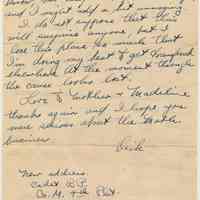 and I might add a bit managing
I do not suppose that this
will surprise anyone, but I
love this place so much that
I'm doing my best to get transferred
elsewhere. At the moment though
the cause looks lost.
Love to Mother & Madeline
thanks again and I hope you
were serious about the
business.
Dick
New address.
Cadet B.P.
Co. M. 4th Plat.